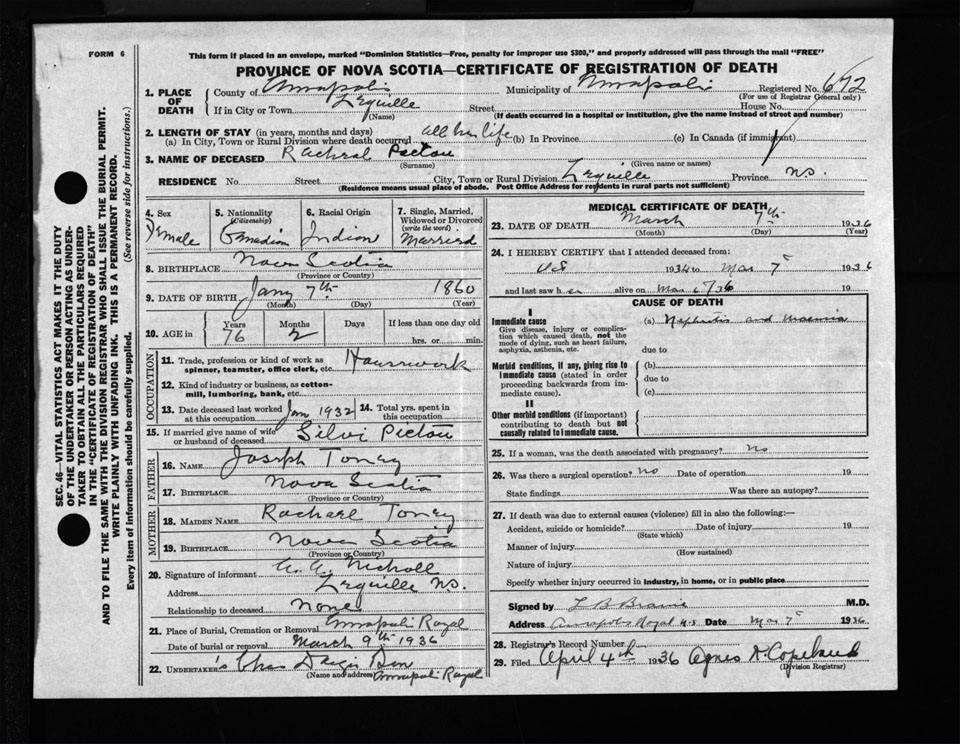 FORM 6
This form if placed in an envelope, marked "Dominion Statistics—Free, penalty for improper use $300," and properly addressed will pass through the mail "FREE"
PROVINCE OF NOVA SCOTIA—CERTIFICATE OF REGISTRATION OF DEATH
1. PLACE OF DEATH County of Annapolis Municipality of Annapolis Registered No. 672
(For use of Registrar General only)
If in City or Town Lequille Street House No.
(Name) (If death occurred in a hospital or institution, give the name instead of street and number)
2. LENGTH OF STAY (in years, months and days)
(a) In City, Town or Rural Division where death occurred all her life (b) In Province (c) In Canada (if immigrant)
3. NAME OF DECEASED Rachael Pictou
(Surname) (Given name or names)
RESIDENCE No. Street City, Town or Rural Division Lequille Province N.S.
(Residence means usual place of abode. Post Office Address for residents in rural parts not sufficient)
4. Sex Female
5. Nationality (Citizenship) Canadian
6. Racial Origin Indian
7. Single, Married, Widowed or Divorced (write the word) Married
8. BIRTHPLACE Nova Scotia
(Province or Country)
9. DATE OF BIRTH Jany 7th 1860
(Month) (Day) (Year)
10. AGE in Years 76 Months 2 Days If less than one day old hrs. or min.
OCCUPATION
11. Trade, profession or kind of work as spinner, teamster, office clerk, etc. Housework
12. Kind of industry or business, as cotton-mill, lumbering, bank, etc.
13. Date deceased last worked at this occupation Jan 1932 14. Total yrs. spent in this occupation
15. If married give name of wife or husband of deceased Silvi Pictou
FATHER
16. NAME Joseph Toney
17. BIRTHPLACE Nova Scotia
(Province or Country)
MOTHER
18. MAIDEN NAME Rachael Toney
19. BIRTHPLACE Nova Scotia
(Province or Country)
20. Signature of informant Nicholl
Address Lequille N.S.
Relationship to deceased None
21. Place of Burial, Cremation or Removal Annapolis Royal
Date of burial or removal March 9th 1936
22. UNDERTAKER'S Chas
(Name and address) Annapolis Royal
MEDICAL CERTIFICATE OF DEATH
23. DATE OF DEATH March 7th 1936
(Month) (Day) (Year)
24. I HEREBY CERTIFY that I attended deceased from:
1934 to Mar 7 1936
and last saw her alive on Mar 6/36 19
CAUSE OF DEATH
I
Immediate cause
Give disease, injury or complication which caused death, not the mode of dying, such as heart failure, asphyxia, asthenia, etc.
(a) Nephritis and Uraemia
due to
Morbid conditions, if any, giving rise to immediate cause (stated in order proceeding backwards from immediate cause).
(b)
due to
(c)
II
Other morbid conditions (if important) contributing to death but not causally related to immediate cause.
25. If a woman, was the death associated with pregnancy? No
26. Was there a surgical operation? No Date of operation 19
State findings Was there an autopsy?
27. If death was due to external causes (violence) fill in also the following:—
Accident, suicide or homicide? Date of injury 19
(State which)
Manner of injury
(How sustained)
Nature of injury
Specify whether injury occurred in industry, in home, or in public place
Signed by L B Braine M.D.
Address Annapolis Royal N.S. Date Mar 7 1936
28. Registrar's Record Number
29. Filed April 4th 1936 Agnes A. Copeland
(Division Registrar)
SEC. 46—VITAL STATISTICS ACT MAKES IT THE DUTY
OF THE UNDERTAKER OR PERSON ACTING AS UNDER-
TAKER TO OBTAIN ALL THE PARTICULARS REQUIRED
IN THE "CERTIFICATE OF REGISTRATION OF DEATH"
AND TO FILE THE SAME WITH THE DIVISION REGISTRAR WHO SHALL ISSUE THE BURIAL PERMIT.
WRITE PLAINLY WITH UNFADING INK. THIS IS A PERMANENT RECORD.
Every item of information should be carefully supplied. (See reverse side for instructions.)